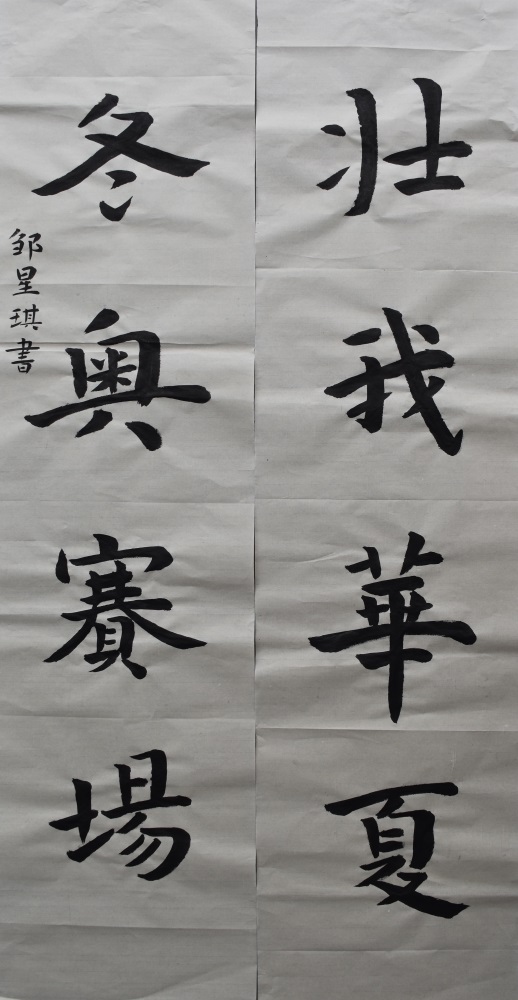 壮我華夏
冬奥賽場
邹星琪書